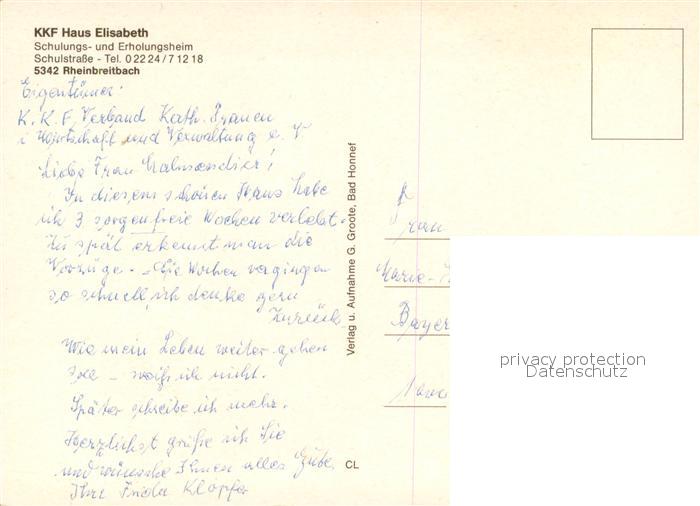 KKF Haus Elisabeth
Schulungs- und Erholungsheim
Schulstraße - Tel. 0 22 24 / 7 12 18
5342 Rheinbreitbach
Eigentümer:
K. K. F. Verband Kath. Frauen
i Wirtschaft und Verwaltung e. V
Liebe Frau
In diesem schönen Haus habe
ich 3 sorgenfreie Wochen verlebt.
Zu spät erkennt man die
Vorzüge. - Die Wochen vergingen
so schnell, ich denke gern
zurück
Wie mein Leben weiter gehen
soll - weiß ich nicht.
Später schreibe ich mehr.
Herzlichst grüße ich Sie
und wünsche Ihnen alles Gute.
Ihre Frieda Klopfer
Verlag u. Aufnahme G. Groote, Bad Honnef
CL
Frau
Marie-
Bayer
privacy protection
Datenschutz